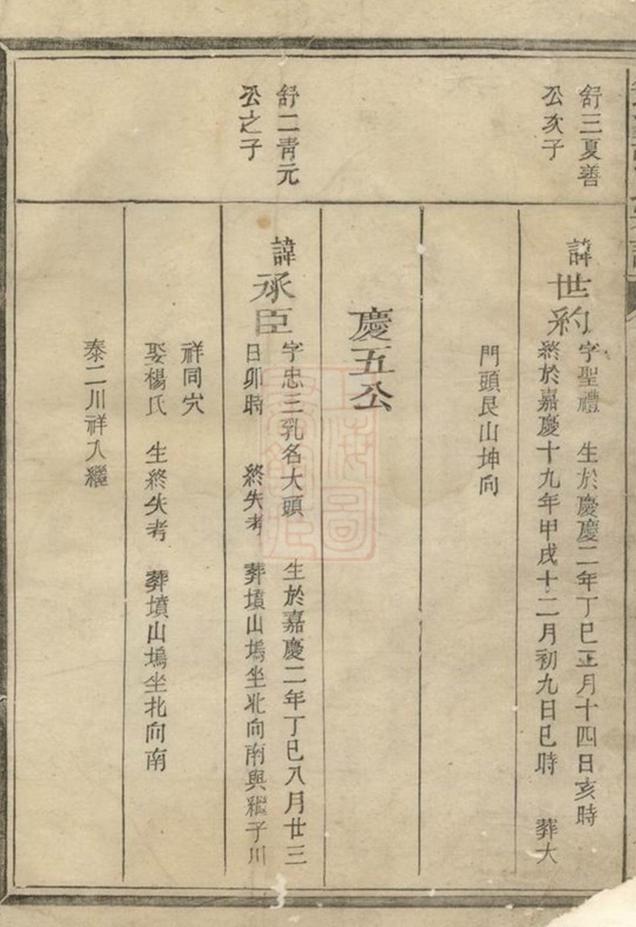 舒三夏善
公次子
諱世約
字聖禮 生於慶慶二年丁巳正月十四日亥時
終於嘉慶十九年甲戌十二月初九日巳時 葬大
門頭艮山坤向
慶五公
舒二青元
公之子
諱承臣
字忠三乳名大頭 生於嘉慶二年丁巳八月廿三
日卯時 終失考 葬墳山塢坐北向南與繼子川
祥同穴
娶楊氏 生終失考 葬墳山塢坐北向南
泰二川祥入繼